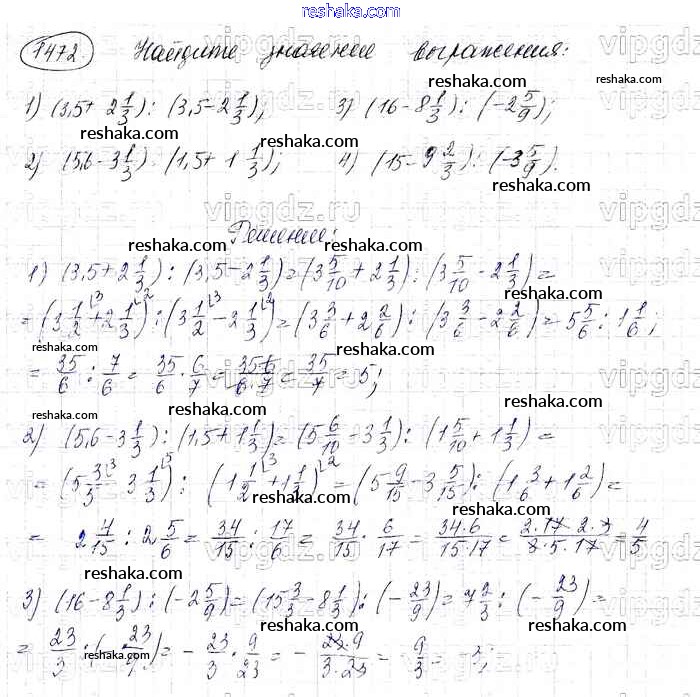 reshaka.com
1472. Найдите значение выражения:
1) (3,5+2 1/3):(3,5-2 1/3); 3) (16-8 1/3):(-2 5/9);
2) (5,6-3 1/3):(1,5+1 1/3); 4) (15-9 2/3):(-3 5/9).
Решение:
1) (3,5+2 1/3):(3,5-2 1/3)=(3 5/10+2 1/3):(3 5/10-2 1/3)=
=(3 1/2+2 1/3):(3 1/2-2 1/3)=(3 3/6+2 2/6):(3 3/6-2 2/6)=5 5/6:1 1/6;
=35/6:7/6=35/6·6/7=35·6/6·7=35/7=5;
2) (5,6-3 1/3):(1,5+1 1/3)=(5 6/10-3 1/3):(1 5/10+1 1/3)=
=(5 3/3-3 1/3):(1 1/2+1 1/3)=(5 9/15-3 5/15):(1 3/6+1 2/6)=
=2 4/15:2 5/6=34/15:17/6=34/15·6/17=34·6/15·17=2·17·2·3/3·5·17=4/5
3) (16-8 1/3):(-2 5/9)=(15 3/3-8 1/3):(-23/9)=7 2/3:(-23/9)=
=23/3:(-23/9)=-23/3·9/23=-23·9/3·23=-9/3=-3;
reshaka.com
vipgdz.ru